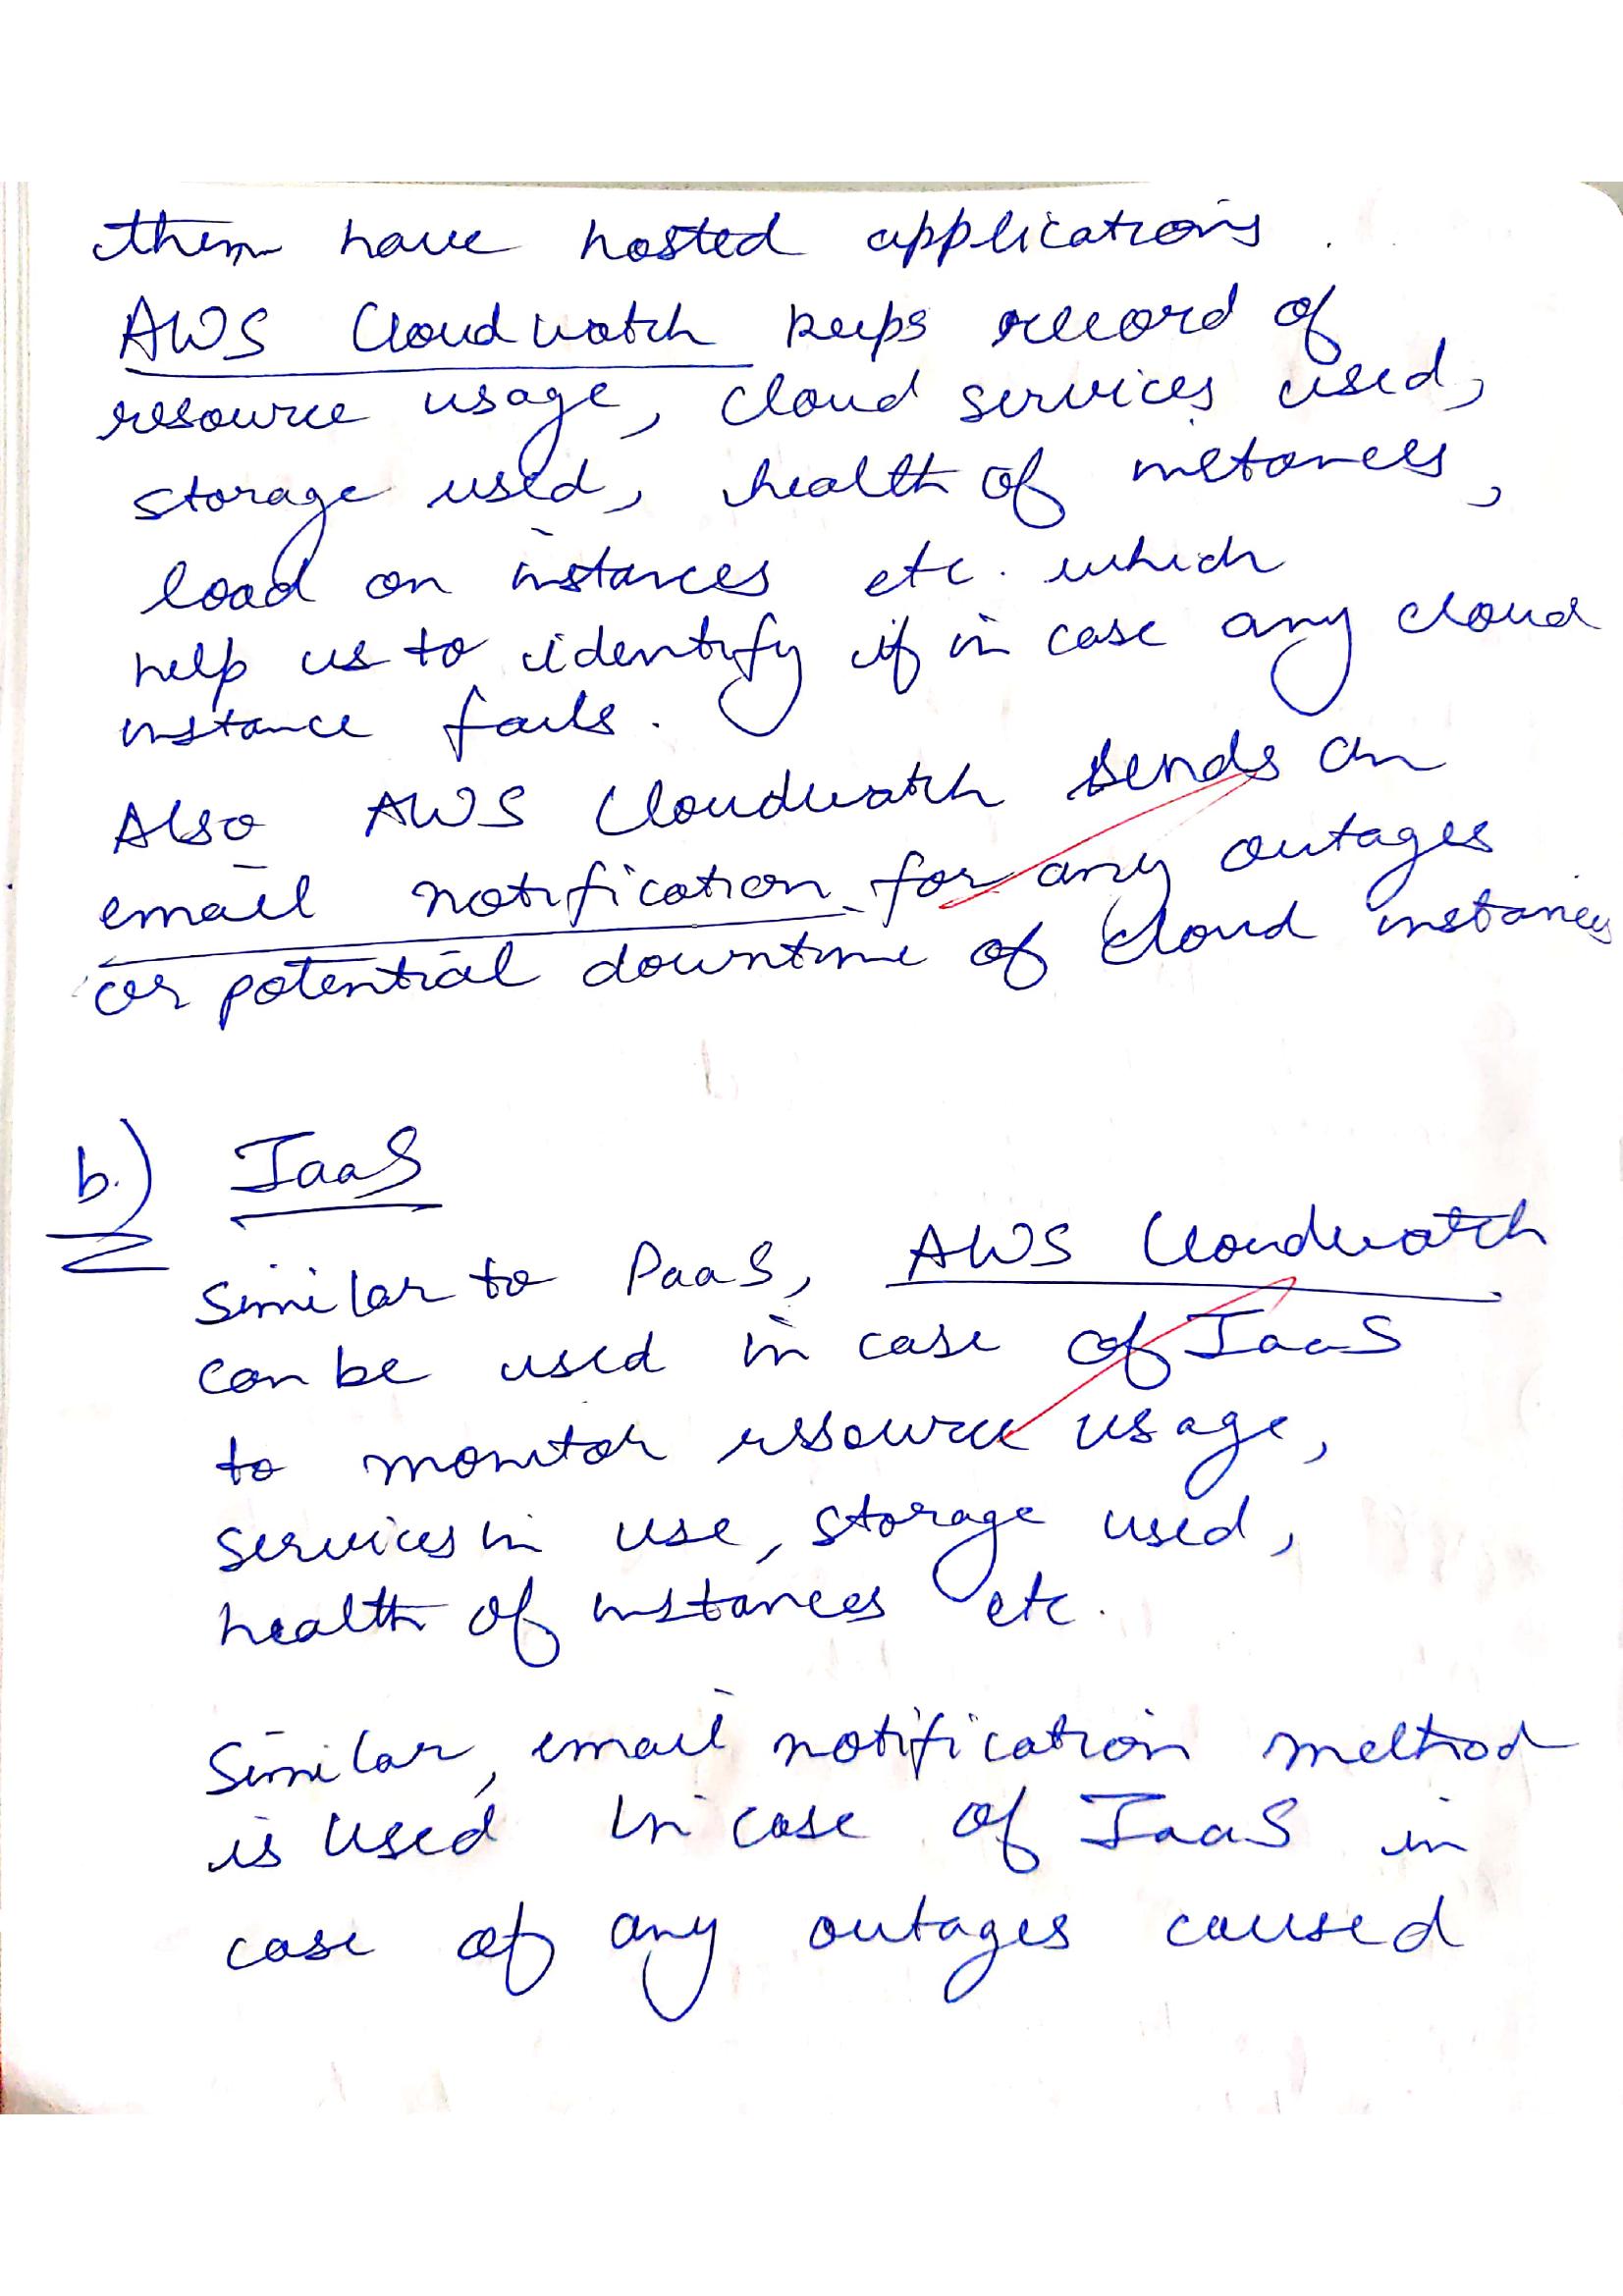 them have hosted applications.
AWS Cloudwatch keeps record of
resource usage, cloud services used,
storage used, health of instances,
load on instances etc. which
help us to identify if in case any cloud
instance fails.
Also AWS Cloudwatch sends an
email notification for any outages
or potential downtime of cloud instances
b.) IaaS
Similar to PaaS, AWS Cloudwatch
can be used in case of IaaS
to monitor resource usage,
services in use, storage used,
health of instances etc.
Similar, email notification method
is used in case of IaaS in
case of any outages caused